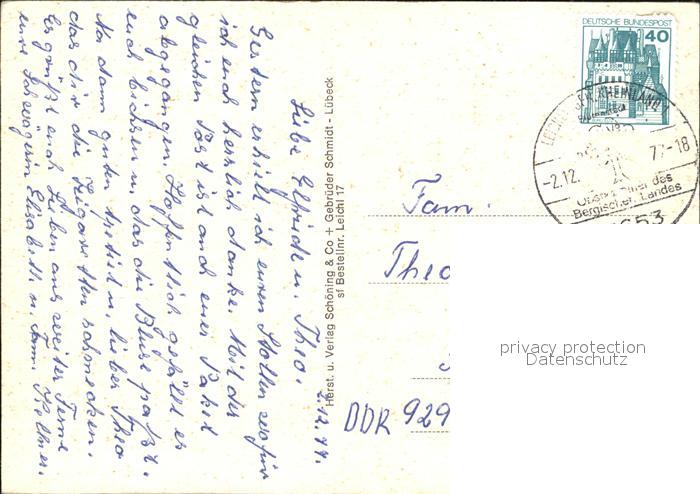 2.12.77.
Liebe Elfriede u. Theo.
Gestern erhielt ich euren Stollen wofür
ich euch herzlich danke. Mit der
gleichen Post ist auch euer Paket
abgegangen. Hoffentlich gefällt es
euch bischen u. das die Bluse paßt.
Na dann guten Appetit u. lieber Theo
das dir die Zigaretten schmecken.
Es grüßt euch Lieben aus weiter Ferne
eure Schwägerin Elisabeth u. Fam.
Herst. u. Verlag Schöning & Co + Gebrüder Schmidt - Lübeck
sf Bestellnr. Leichl 17
DEUTSCHE BUNDESPOST
40
-2.12. 77-18
Bergischen Landes
5653
Fam.
Theo
DDR 929
privacy protection
Datenschutz